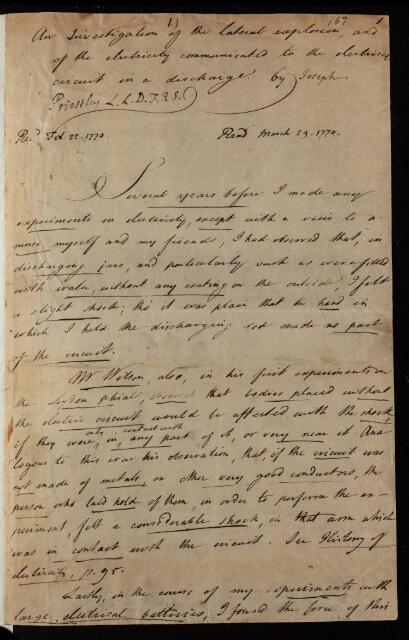 11 167 1
An Investigation of the lateral explosion, and
of the electricity communicated to the electrical
circuit in a discharge by Joseph
Priestley L.L.D.F.R.S.
Rec.d Feb. 22. 1770. Read March 29. 1770.
Several years before I made any
experiments in electricity, except with a view to a-
muse myself and my friends, I had observed that, in
discharging jars, and particularly such as were filled
with water, without any coating on the outside, I felt
a slight shock; tho' it was plain that the hand in
which I held the discharging rod made no part
of the circuit.
Mr Wilson, also, in his first experiments on
the Leyden phial, observed that bodies placed without
the electric circuit would be affected with the shock,
if they were only in contact with any part of it, or very near it. Ana-
logous to this was his observation, that, if the circuit was
not made of metals, or other very good conductors, the
person who laid hold of them, in order to perform the ex-
periment, felt a considerable shock, in that arm which
was in contact with the circuit. See History of
electricity, p. 95.
Lastly, in the course of my experiments with
large electrical batteries, I found the force of this